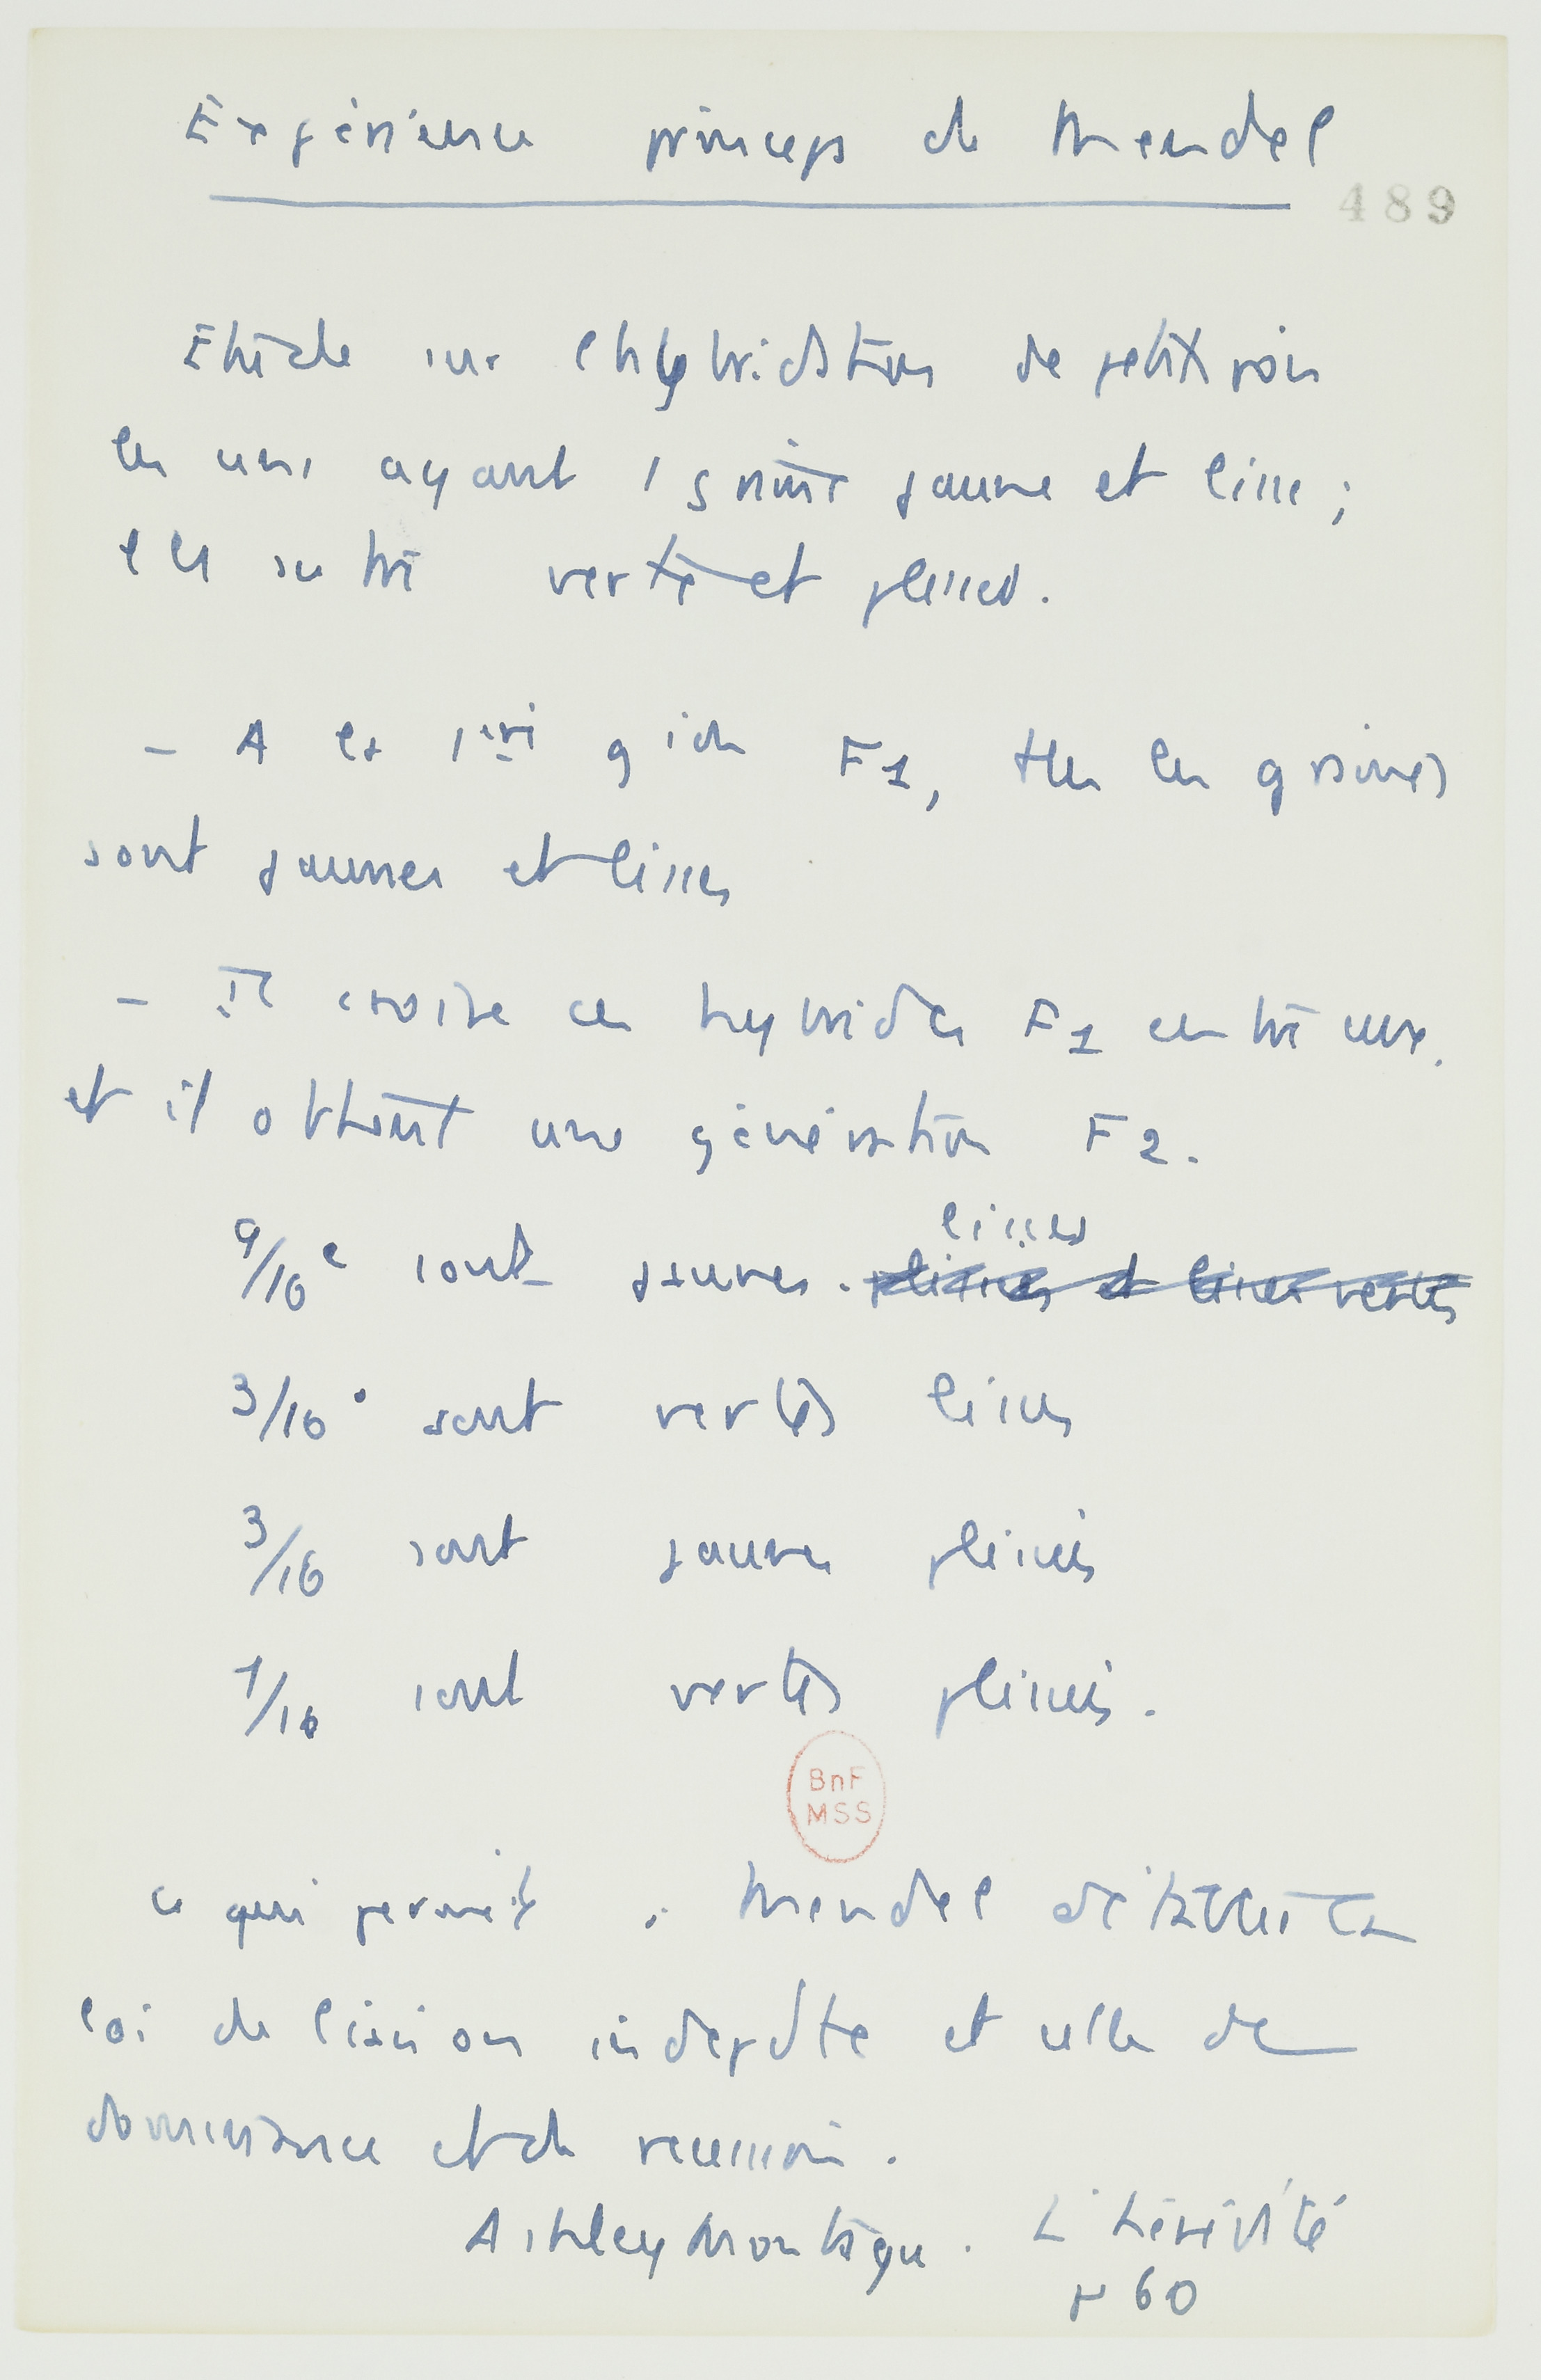 Expérience princeps de Mendel
489
Etude sur l'hybridation de petits pois
les uns ayant 1 graine jaune et lisse ;
les autre verte et plissée.
- A la 1ère géé F1, ttes les graines
sont jaunes et lisses
- Il croise ces hybrides F1 entre eux.
et il obtient une génération F2.
lisses
9/16e sont jaunes. plissées et lisses vertes
3/16e sont vertes lisses
3/16 sont jaunes plissées
1/16 sont vertes plissées.
BnF
MSS
ce qui permet à Mendel d'établir la
loi de liaison indepdte et celle de
dominance et de récession.
Ashley Montagu. L'hérédité
p 60